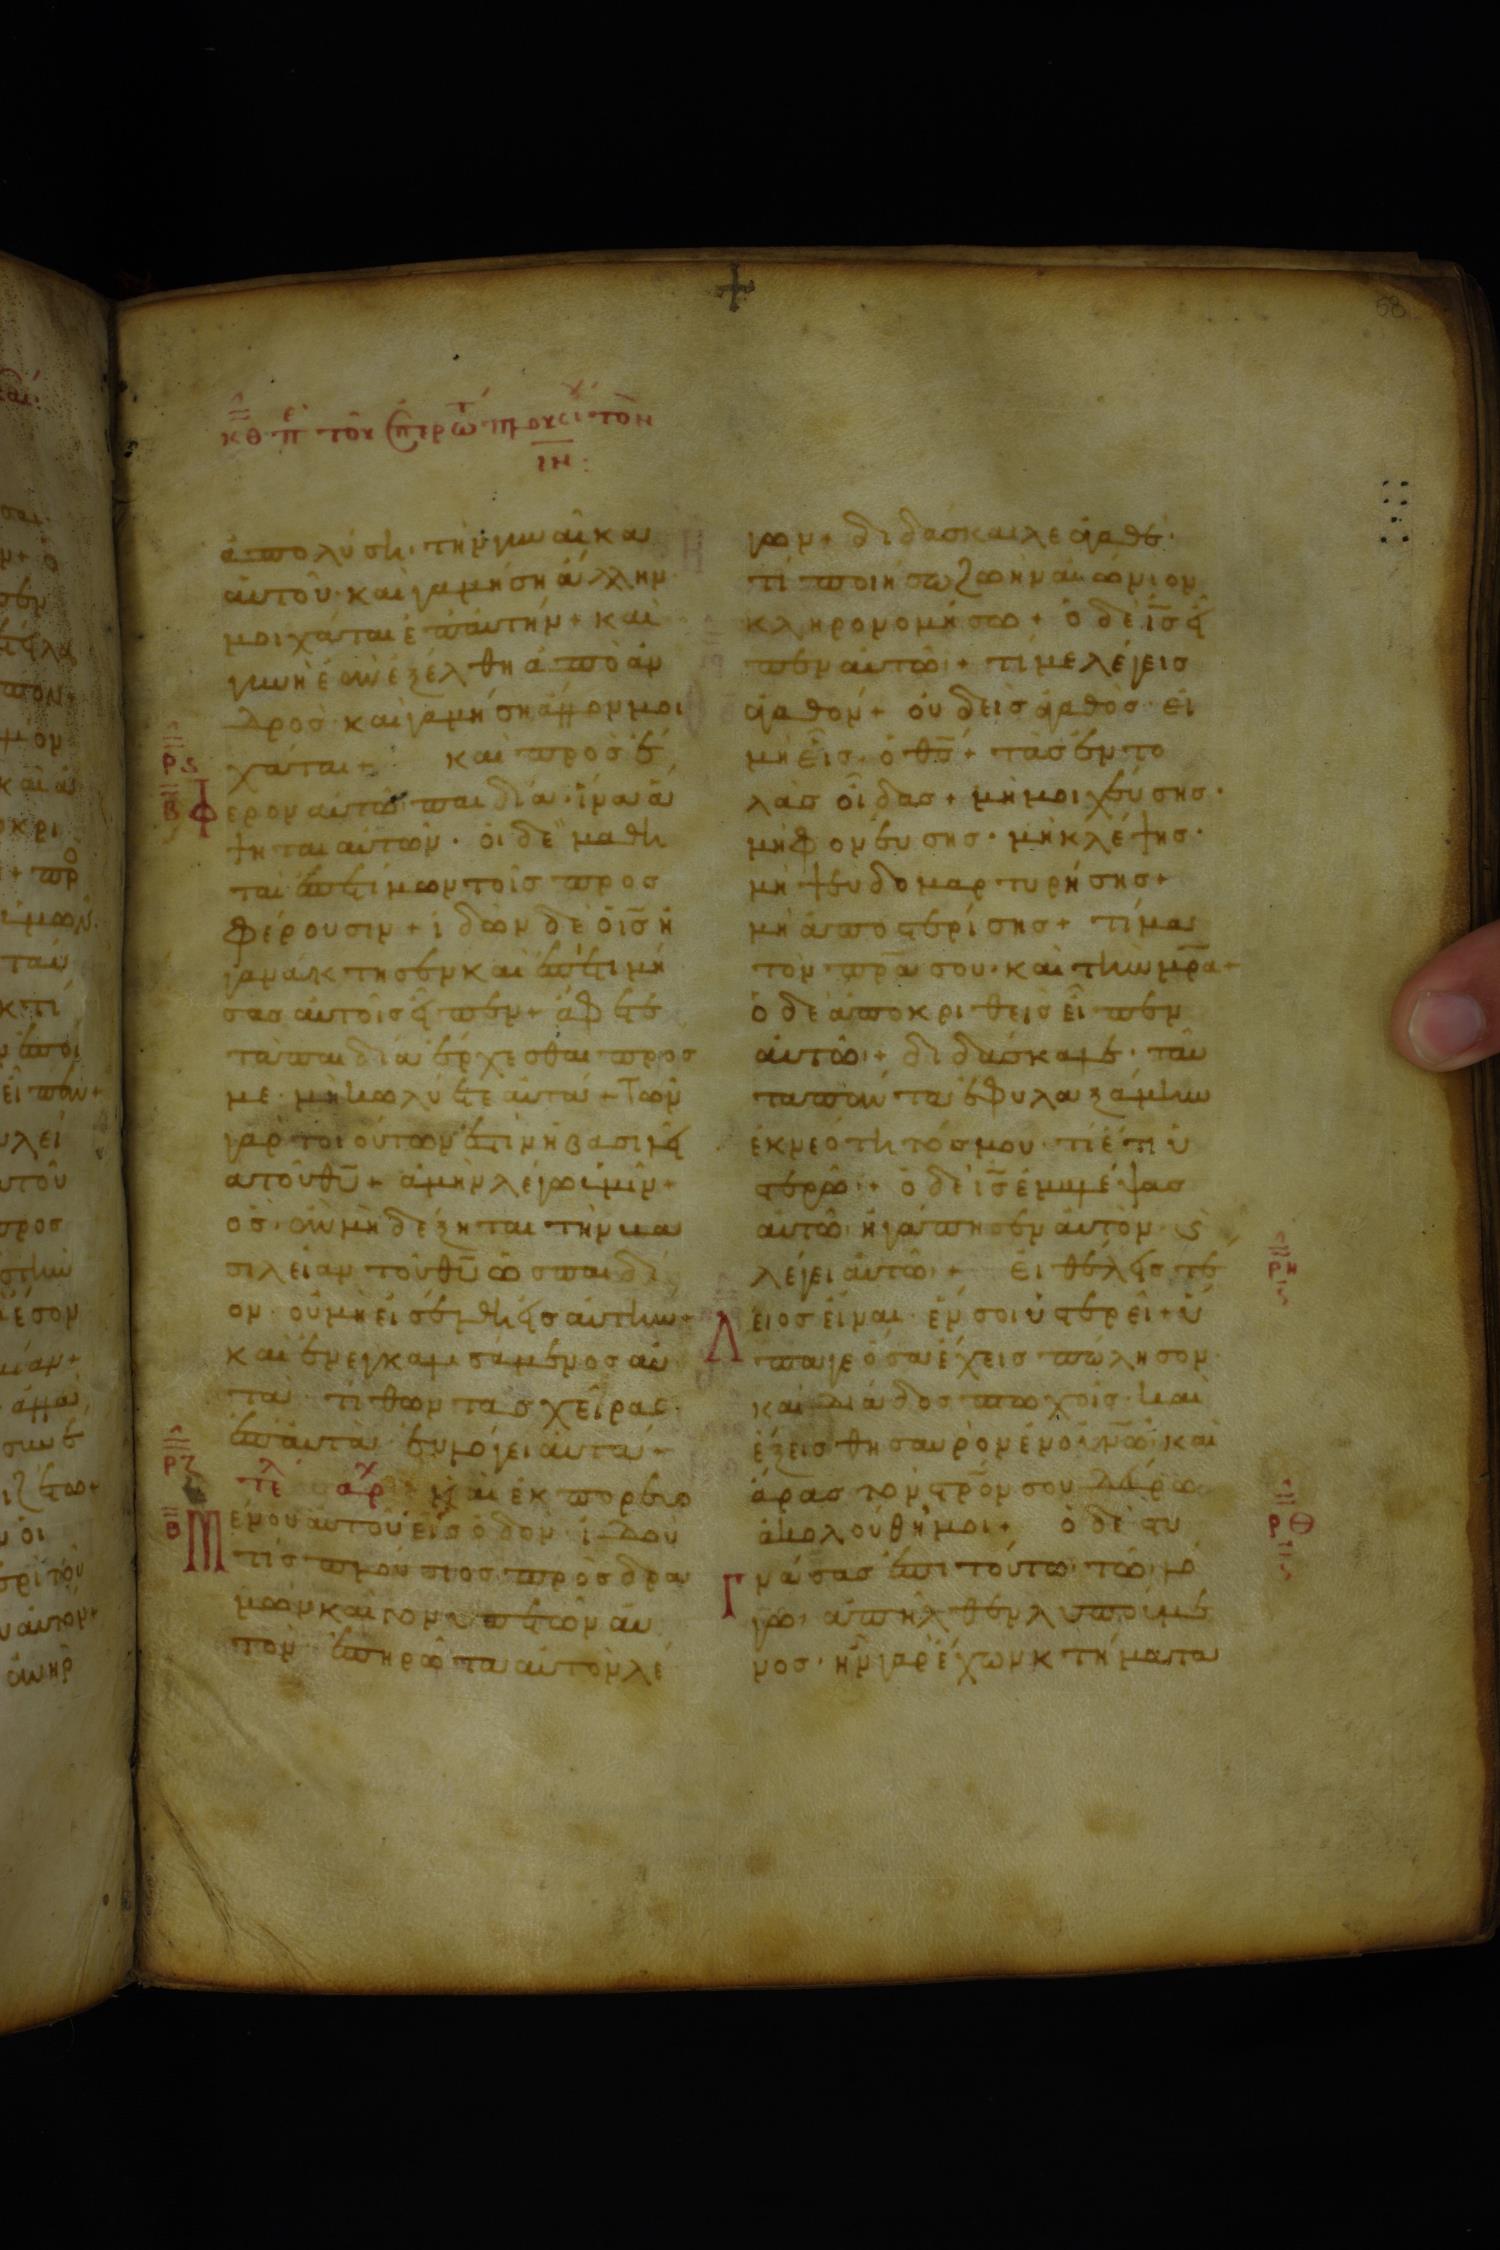 58
κθ π̅ε τοῦ ἐπερωτ πλουσί τὸν
ιη :
ἀπολύση· τὴν γυναῖκα
αὐτοῦ· καὶ γαμήση ἄλλην
μοιχᾶται ἐπ αὐτήν + καὶ
γυνὴ ἐὰν ἐξέλθη ἀπὸ ἀν
δρὸς· καὶ γαμήση ἄλλον μοι
χᾶται + καὶ προσέ
ρς
β
Φερον αὐτῶ παιδία· ἵνα ἅ
ψηται αὐτῶν· οἱ δὲ μαθη
ταὶ ἐπετίμων τοῖς προσ
φέρουσιν + ἰδὼν δὲ ὁ ις̅ ἠ
γανάκτησεν καὶ ἐπετιμή
σας αὐτοῖς εἶπεν + ἄφετε
τὰ παιδία ἔρχεσθαι προς
με· μὴ κωλύετε αὐτά + Τῶν
γὰρ τοιούτων ἐστὶν ἡ βασιλεί
α τοῦ θυ̅ + ἀμὴν λέγω ὑμῖν +
ὃς· ἂν μὴ δέξηται τὴν βα
σιλείαν τοῦ θυ̅ ὡς παιδί
ον· οὐ μὴ εἰσέλθη εἰς αὐτήν +
καὶ ἐναγκαλισάμενος αὐ
τὰ· τιθῶν τὰς χεῖρας
ἐπ αὐτὰ· εὐλόγει αὐτά +
ρζ
β
τε λ αρχ Καὶ ἐκπορευο
Μένου αὐτοῦ εἰς ὁδὸν· ἰδοὺ
τίς πλούσιος προσδρα
μὼν καὶ γονυπετῶν αὐ
τὸν· ἐπηρώτα αὐτὸν λέ
γων + διδάσκαλε ἀγαθέ·
τί ποιήσω ζωὴν αἰώνιον
κληρονομήσω + ὁ δὲ ις̅ εἶ
πεν αὐτῶ + τί με λέγεις
ἀγαθόν + οὐδεὶς ἀγαθὸς· εἰ
μὴ εἷς· ὁ θς̅ + τὰς ἐντο
λὰς οἶδας + μὴ μοιχεύσης·
μὴ φονεύσης· μὴ κλέψης·
μὴ ψευδομαρτυρήσης +
μὴ ἀποστερίσης + τίμα
τὸν πρα̅ σου· καὶ τὴν μρα̅ +
ὁ δὲ ἀποκριθεὶς εἶπεν
αὐτῶ + διδάσκαλε· ταῦ
τα πάντα ἐφυλαξάμην
ἐκ νεότητός μου· τί ἔτι ὑ
στερῶ + ὁ δὲ ις̅ ἐμβλέψας
αὐτῶ ἠγάπησεν αὐτὸν· καὶ
λέγει αὐτῶ + εἰ θέλεις τέ
ρη
Λειος εἶναι· ἕν σοι ὑστερεῖ + ὕ
παγε ὅσα ἔχεις πώλησον
καὶ διάδος πτωχοῖς· καὶ
ἕξεις θησαυρὸν ἐν οὐνω̅· καὶ
ἄρας τὸν στρο̅ν σου δεῦρο
ἀκολούθη μοι + ὁ δὲ στυ
ρθ
Γνάσας ἐπὶ τούτω· τῶ λό
γω· ἀπῆλθεν λυπούμε
νος· ἦν γὰρ ἔχων κτήματα